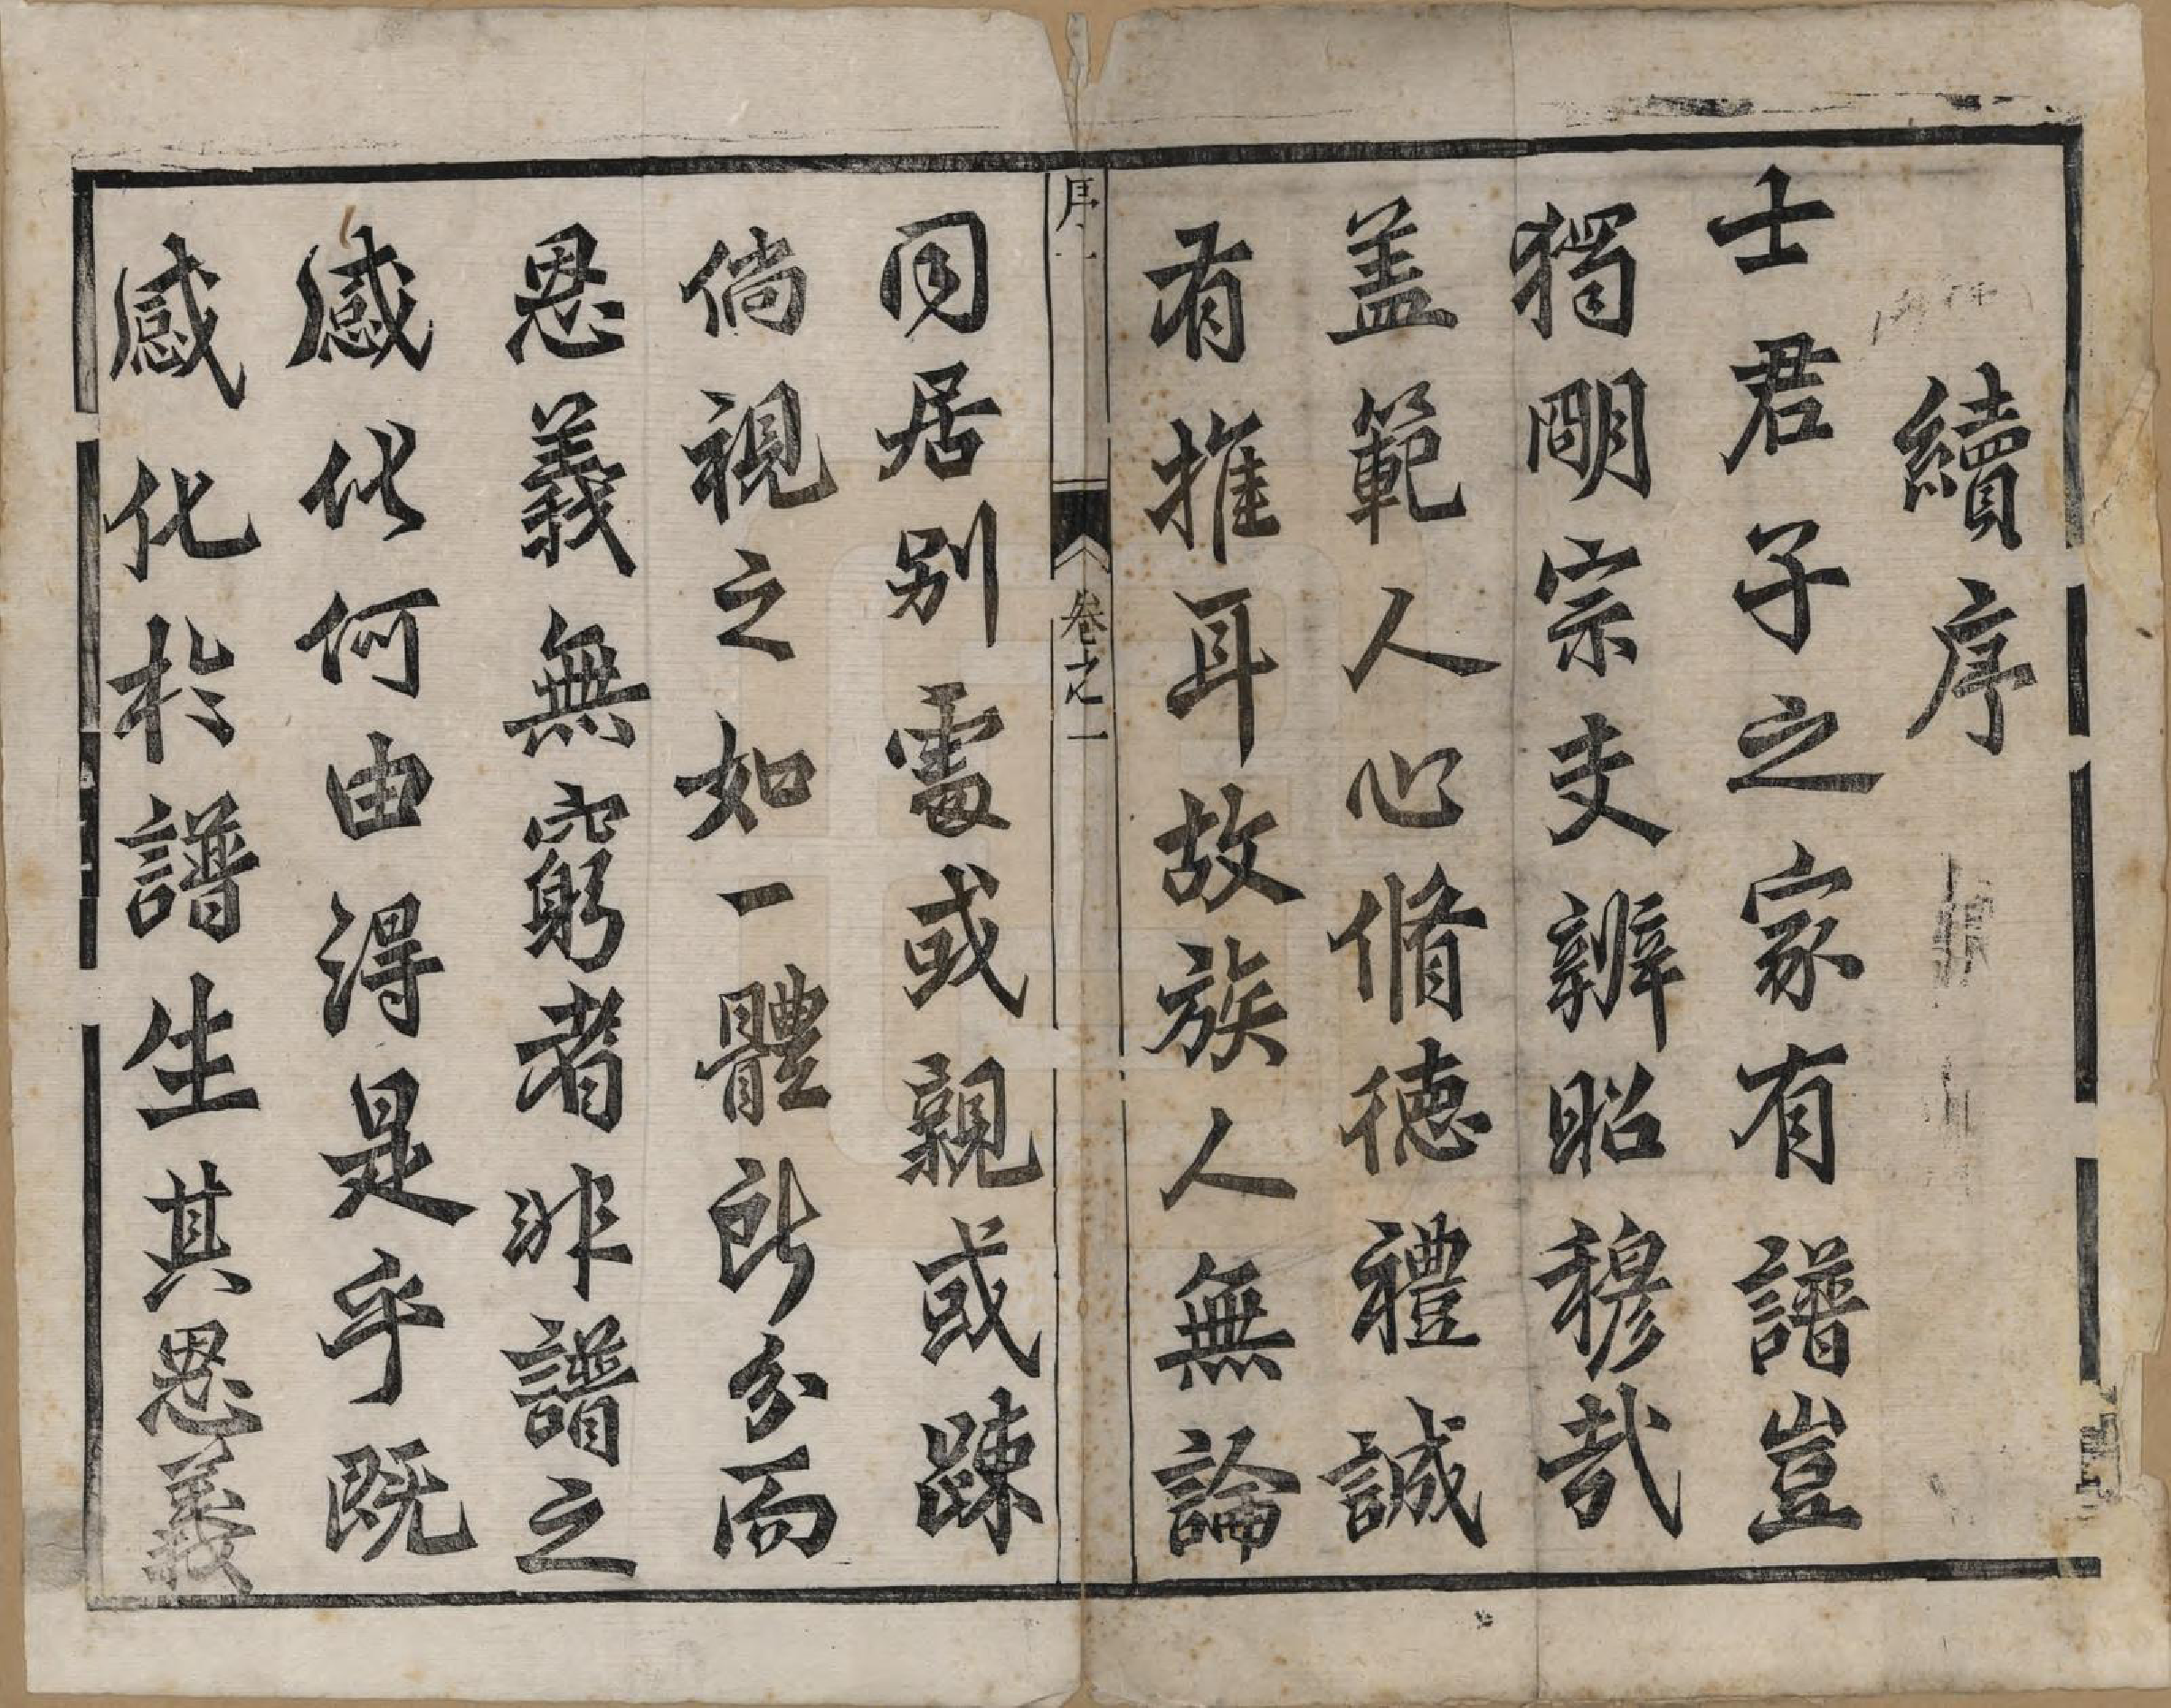 續序
士君子之家有譜豈
獨明宗支辨昭穆哉
蓋範人心脩德禮誠
有推耳故族人無論
同居別處或親或踈
倘視之如一體所分而
恩義無窮者非譜之
感化何由得是乎既
感化於譜生其恩義
序一
卷之一